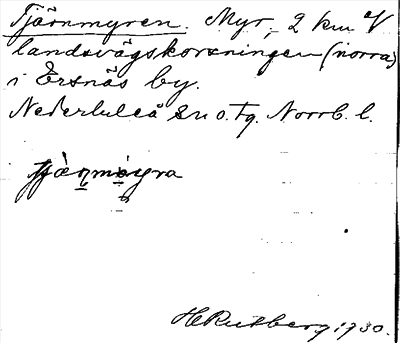 Tjärnmyren. Myr, 2 km V
landsvägskorsningen (norra)
i Ersnäs by.
Nederluleå sn o. tg. Norrb. l.
H Rutberg 1930.